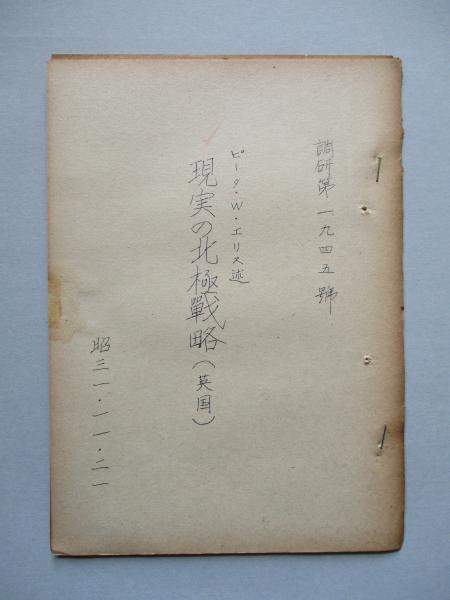 調研第一九四五號
ピータ・W・エリス述
現実の北極戰略(英国)
昭三一・一一・二一